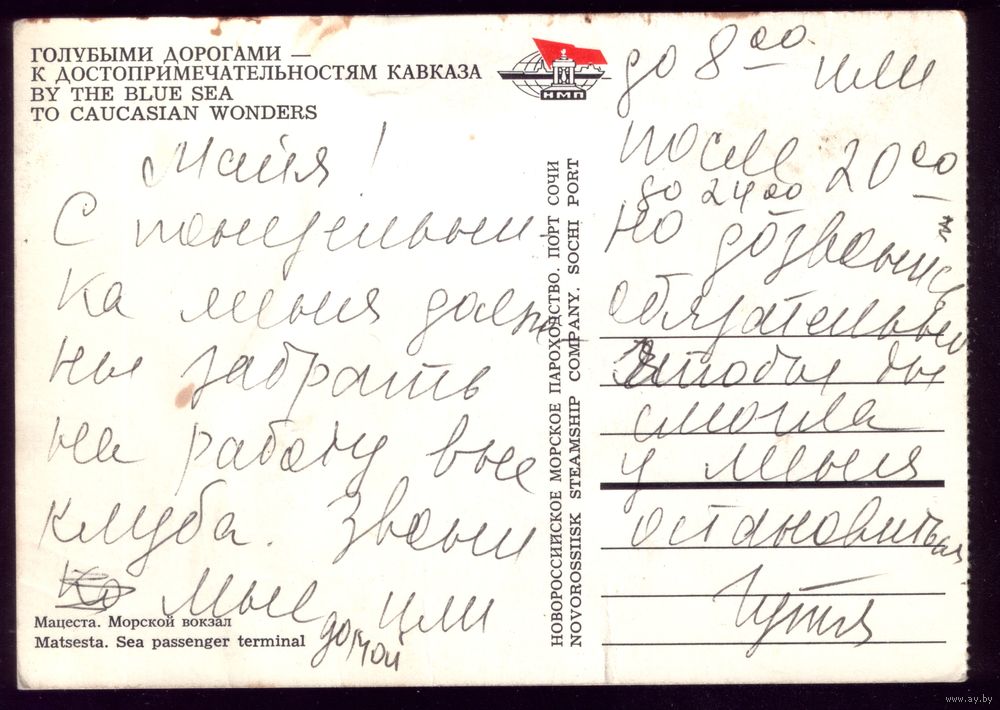 ГОЛУБЫМИ ДОРОГАМИ —
К ДОСТОПРИМЕЧАТЕЛЬНОСТЯМ КАВКАЗА
BY THE BLUE SEA
TO CAUCASIAN WONDERS
НМП
Майя!
С понедельни-
ка меня долж
ны забрать
на работу вне
клуба. Звони
мне или
домой
Мацеста. Морской вокзал
Matsesta. Sea passenger terminal
НОВОРОССИЙСКОЕ МОРСКОЕ ПАРОХОДСТВО. ПОРТ СОЧИ
NOVOROSSIISK STEAMSHIP COMPANY. SOCHI PORT
до 8 00 или
после 20 00
до 24 00
но дозвонись
обязательно
чтобы ты
смогла
у меня
остановиться
www.ay.by